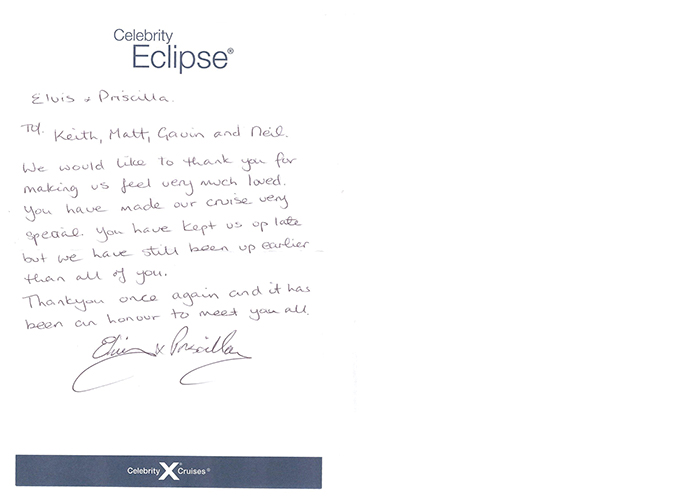 Celebrity
Eclipse®
Elvis & Priscilla.
To. Keith, Matt, Gavin and Neil.
We would like to thank you for
making us feel very much loved.
You have made our cruise very
special. You have kept us up late
but we have still been up earlier
than all of you.
Thankyou once again and it has
been an honour to meet you all.
Elvis & Priscilla
Celebrity X Cruises®